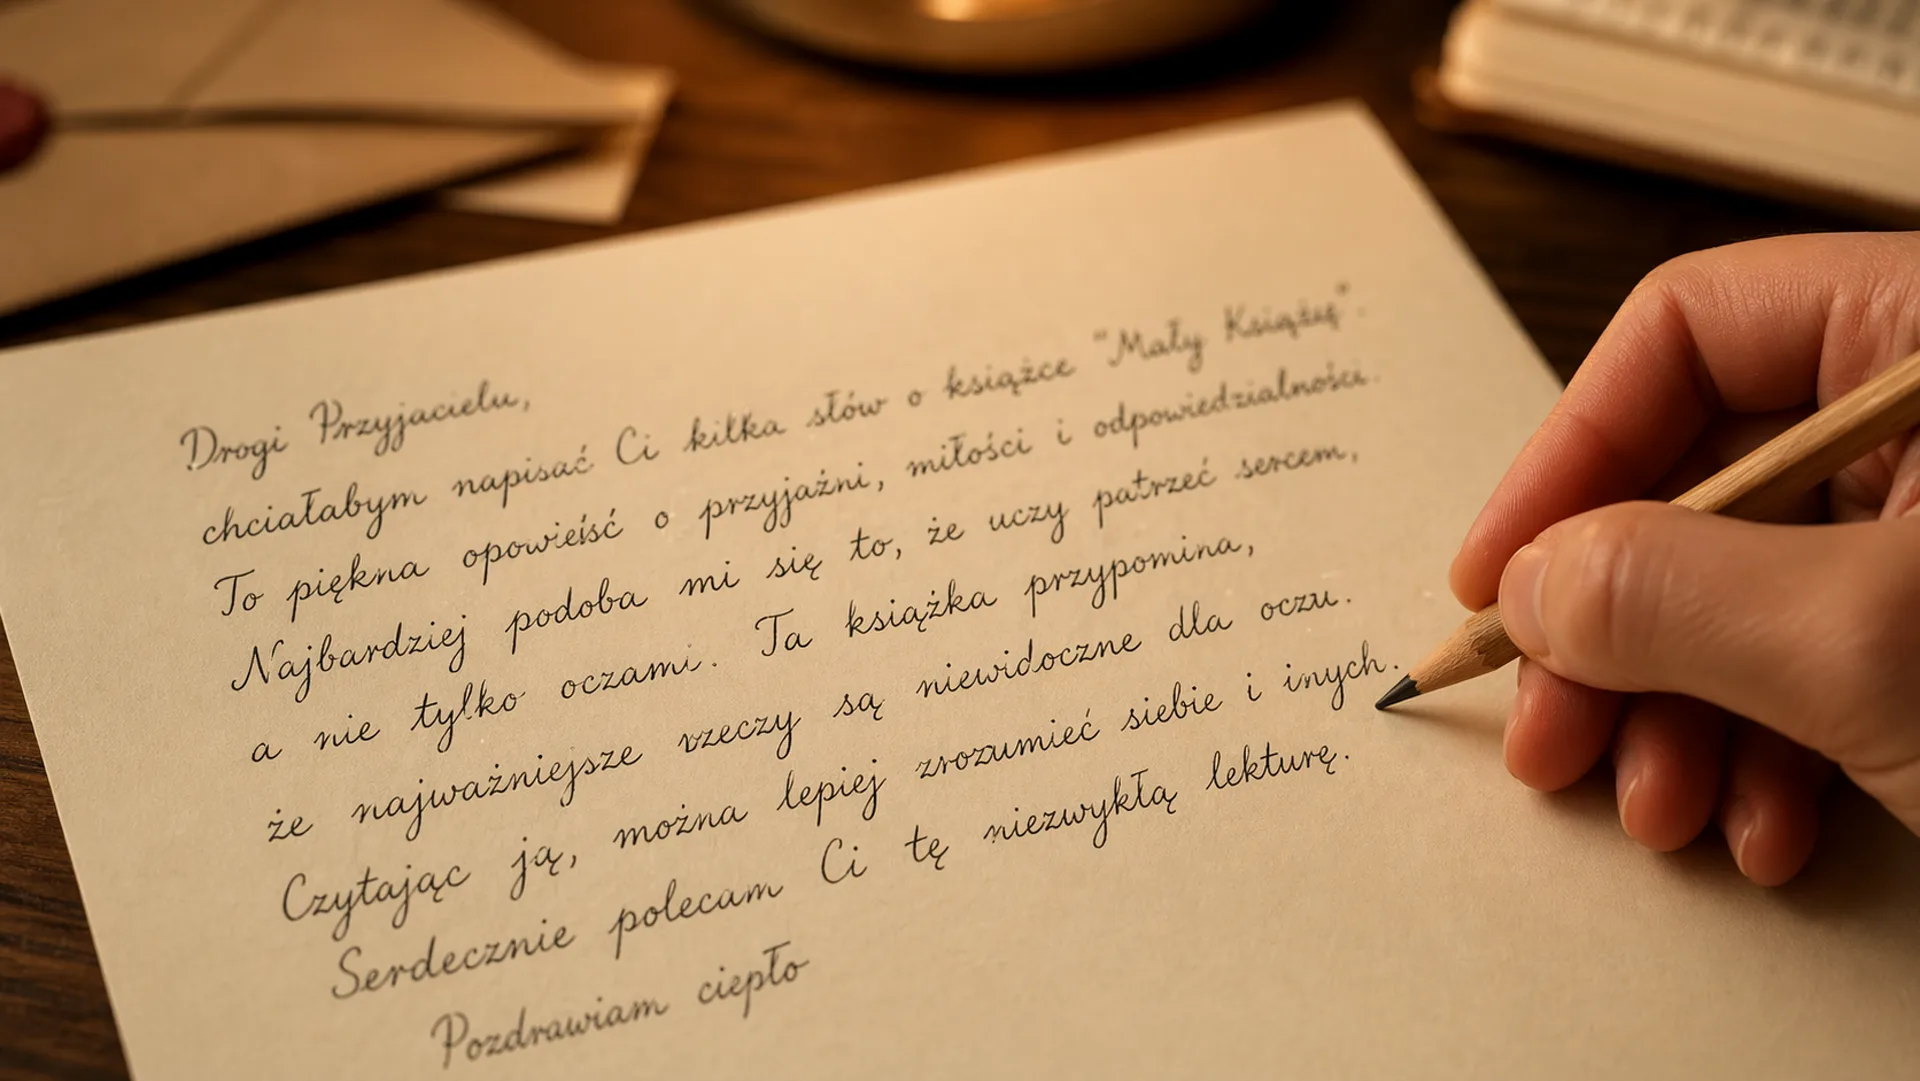 Drogi Przyjacielu,
chciałabym napisać Ci kilka słów o książce "Mały Książę".
To piękna opowieść o przyjaźni, miłości i odpowiedzialności.
Najbardziej podoba mi się to, że uczy patrzeć sercem,
a nie tylko oczami. Ta książka przypomina,
że najważniejsze rzeczy są niewidoczne dla oczu.
Czytając ją, można lepiej zrozumieć siebie i inych.
Serdecznie polecam Ci tę niezwykłą lekturę.
Pozdrawiam ciepło